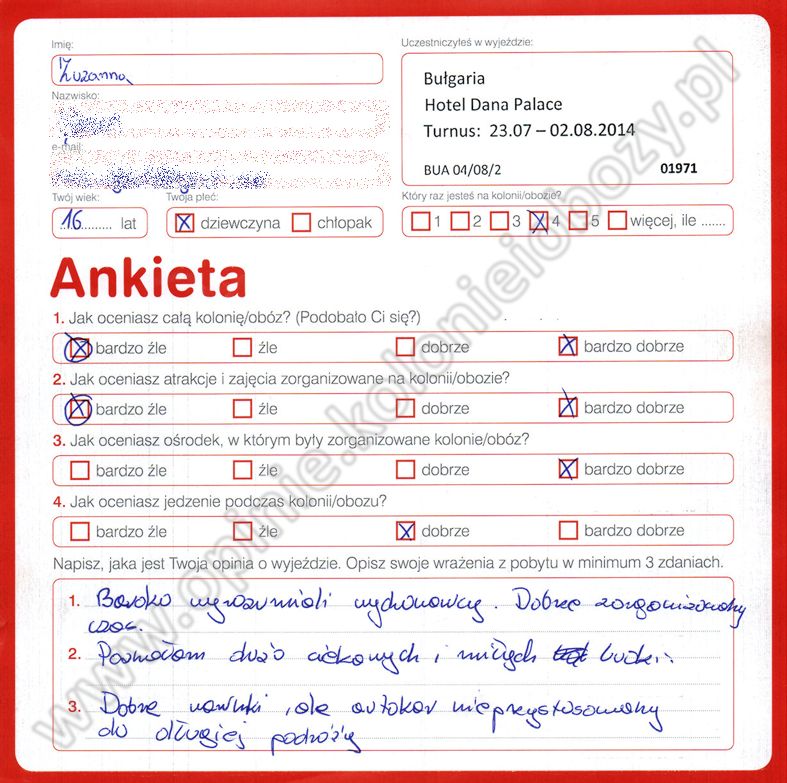 Imię:
Zuzanna
Uczestniczyłeś w wyjeździe:
Bułgaria
Hotel Dana Palace
Turnus: 23.07 – 02.08.2014
BUA 04/08/2 01971
Nazwisko:
e-mail:
Twój wiek:
16 lat
Twoja płeć:
dziewczyna chłopak
Który raz jesteś na kolonii/obozie?
1 2 3 4 5 więcej, ile .......
Ankieta
1. Jak oceniasz całą kolonię/obóz? (Podobało Ci się?)
bardzo źle źle dobrze bardzo dobrze
2. Jak oceniasz atrakcje i zajęcia zorganizowane na kolonii/obozie?
bardzo źle źle dobrze bardzo dobrze
3. Jak oceniasz ośrodek, w którym były zorganizowane kolonie/obóz?
bardzo źle źle dobrze bardzo dobrze
4. Jak oceniasz jedzenie podczas kolonii/obozu?
bardzo źle źle dobrze bardzo dobrze
Napisz, jaka jest Twoja opinia o wyjeździe. Opisz swoje wrażenia z pobytu w minimum 3 zdaniach.
1. Bardzo wyrozumiali wychowawcy. Dobrze zorganizowany
czas.
2. Poznałam dużo ciekawych i miłych ludzi.
3. Dobre warunki, ale autokar nieprzystosowany
do długiej podróży
www.opinie.kolonieiobozy.pl